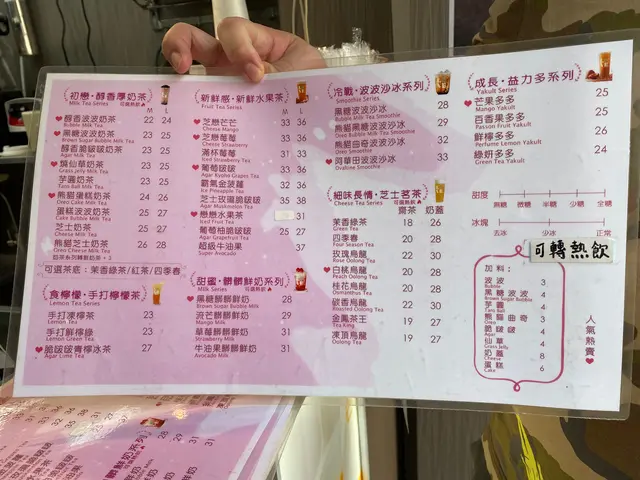 初戀·醇香厚奶茶
Milk Tea Series 可轉熱飲
M L
醇香波波奶茶 22 24
Bubble Milk Tea
黑糖波波奶茶 23 25
Brown Sugar Bubble Milk Tea
醇香脆啵啵奶茶 23 25
Agar Milk Tea
燒仙草奶茶 23 25
Grass Jelly Milk Tea
芋圓奶茶 23 25
Taro Ball Milk Tea
熊貓蛋糕奶茶 24 26
Oreo Cake Milk Tea
蛋糕波波奶茶 25 27
Cake Bubble Milk Tea
芝士奶茶 25 27
Cheese Milk Tea
熊貓芝士奶茶 26 28
Oreo Cheese Milk Tea
可選茶底:茉香綠茶/紅茶/四季春
食檸檬·手打檸檬茶
Lemon Tea Series
手打凍檸茶 23
Lemon Tea
手打解檸綠 23
Lemon Green Tea
脆啵啵青檸冰茶 27
Agar Lime Tea
新鮮感·新鮮水果茶
Fruit Tea Series
M L
芝戀芒芒 33 36
Cheese Mango
芝戀莓莓 33 36
Cheese Strawberry
滿杯莓莓 31 33
Iced Strawberry Tea
葡葡啵啵 33 36
Agar Kyoho Grapes Tea
霸氣金菠蘿 32 36
Ice Pineapple Tea
芝士玫瑰脆啵啵 35 38
Agar Muskmelon Tea
戀戀水果茶 31
Iced Fruit Tea
葡萄柚脆啵啵 25 27
Agar Grapefruit Tea
超級牛油果 37
Super Avocado
甜蜜·髒髒鮮奶系列
Milk Series 可轉熱飲
黑糖髒髒鮮奶 28
Brown Sugar Bubble Milk
流芒髒鮮奶 29
Mango Milk
草莓髒髒鮮奶 31
Strawberry Milk
牛油果髒髒鮮奶 31
Avocado Milk
冷戰·波波沙冰系列
Smoothie Series
波波奶茶沙冰 28
Bubble Milk Tea Smoothie
熊貓黑糖波波沙冰 29
熊貓曲奇波波沙冰 33
Oreo Smoothie
阿華田波波沙冰 33
Ovaltine Smoothie
細味長情·芝士茗茶
Cheese Tea Series 可轉熱飲
齋茶 奶蓋
茉香綠茶 18 26
Green Tea
四季春 20 28
Four Season Tea
玫瑰烏龍 22 30
Rose Oolong Tea
白桃烏龍 22 30
Peach Oolong Tea
桂花烏龍 20 28
Osmanthus Tea
碳香烏龍 22 30
Roasted Oolong Tea
金鳳茶王 19 27
Tea King
凍頂烏龍 19 27
Oolong Tea
成長·益力多系列
Yakult Series
芒果多多 25
Mango Yakult
百香果多多 25
Passon Fruit Yakult
鮮檸多多 26
Perfume Lemon Yakult
綠妍多多 24
Green Tea Yakult
甜度
無糖 微糖 半糖 少糖 全糖
冰塊
去冰 少冰 正常
可轉熱飲
加料:
波波 3
Bubble
黑糖波波 4
Brown Sugar Bubble
芋圓 4
Taro Ball
熊貓曲奇 3
Oreo
脆啵啵 4
Agar
仙草 4
Grass Jelly
奶蓋 8
Cheese
蛋糕 6
Cake
人氣熱賣